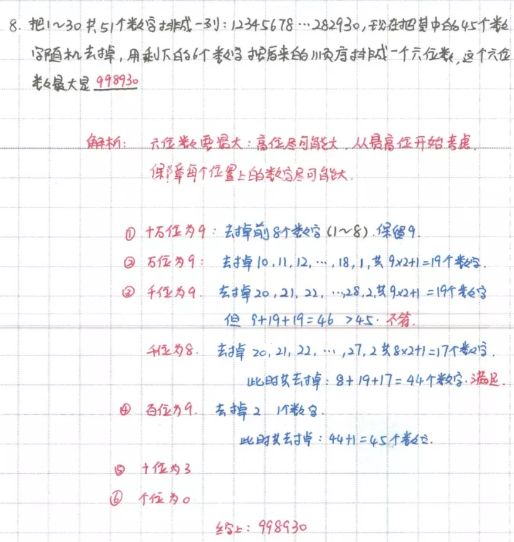 8. 把1~30共51个数字排成一列：12345678…282930，现在把其中的45个数
字随机去掉，用剩下的6个数字按原来的顺序排成一个六位数，这个六位
数最大是 998930
解析： 六位数要最大：高位尽可能大，从最高位开始考虑，
保障每个位置上的数字尽可能大.
① 十万位为9：去掉前8个数字(1~8).保留9.
② 万位为9：去掉10,11,12,…,18,1,共9×2+1=19个数字.
③ 千位为9. 去掉20,21,22,…,28,2,共9×2+1=19个数字
但 8+19+19=46 >45. 不符.
千位为8. 去掉20,21,22,…,27,2共8×2+1=17个数字.
此时共去掉：8+19+17=44个数字.满足.
④ 百位为9. 去掉2 1个数字.
此时共去掉：44+1=45个数字.
⑤ 十位为3
⑥ 个位为0
综上：998930